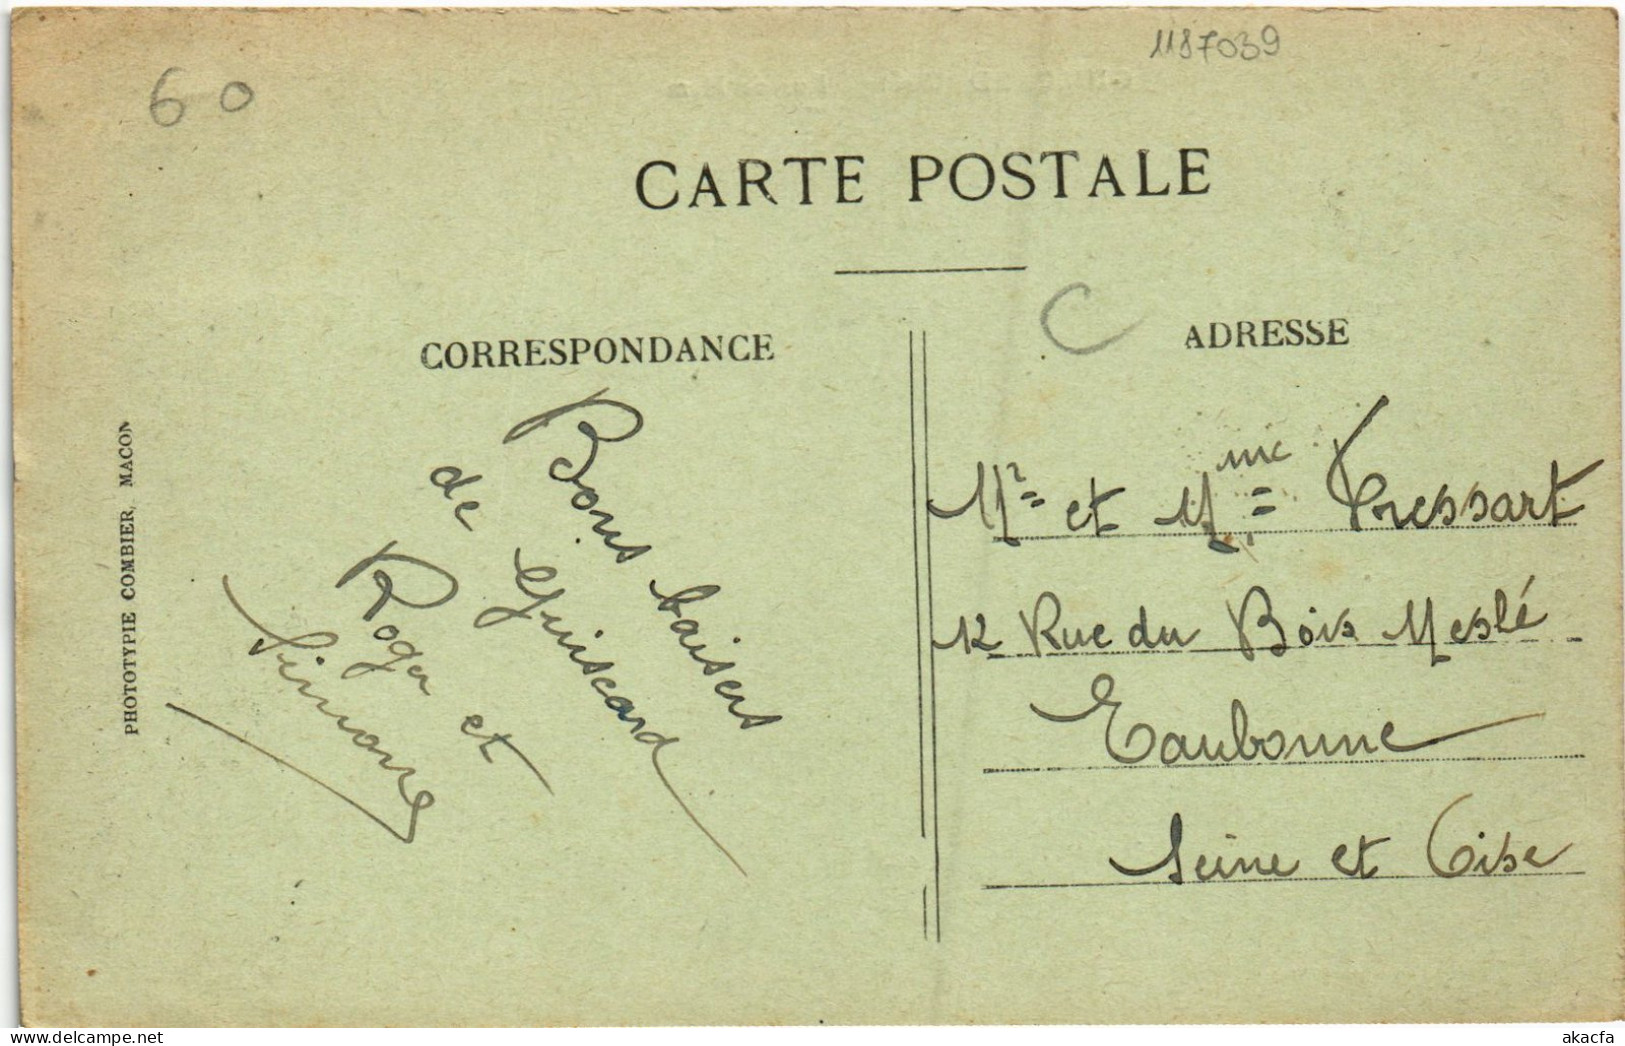 1187039
60
CARTE POSTALE
C
CORRESPONDANCE
ADRESSE
Bons baisers
de Guiscard
Roger et
Simone
Mr et Mme Tressart
12 Rue du Bois Meslé
Eaubonne
Seine et Oise
PHOTOTYPIE COMBIER, MACON
akacfa